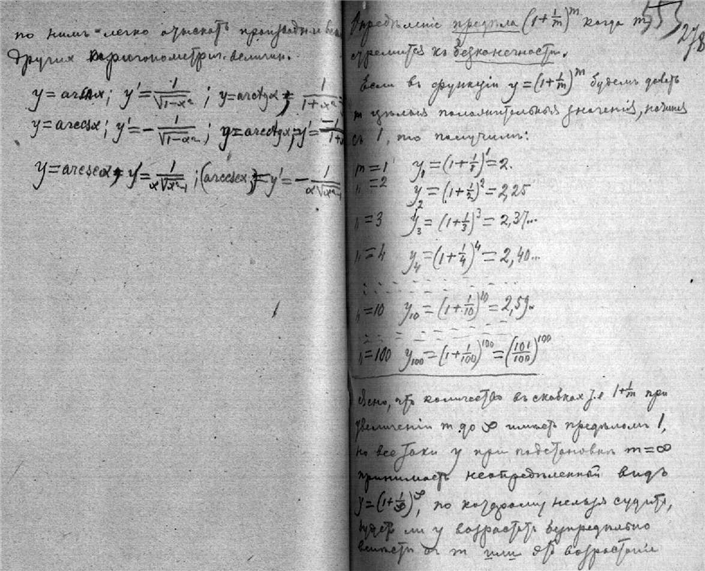 по нимъ легко отыскать производныя
другихъ тригонометрич. величин.
y = arcsin x; y' = 1/√(1-x²); y = arctg x; 1/(1+x²)
y = arccos x; y' = -1/√(1-x²); y = arcctg x; y' = -1/
y = arcsec x; y' = 1/(x√(x²-1)); (arccsc x; y' = -1/(x√(x²-1))
278
Определеніе предѣла (1+1/m)^m когда m
стремится къ безконечности.
Если въ функціи y = (1+1/m)^m будемъ давать
m цѣлыя положительныя значенія, начиная
съ 1, то получимъ:
m = 1 y₁ = (1+1/1)^1 = 2.
" = 2 y₂ = (1+1/2)^2 = 2,25
" = 3 y₃ = (1+1/3)^3 = 2,37...
" = 4 y₄ = (1+1/4)^4 = 2,40...
" = 10 y₁₀ = (1+1/10)^10 = 2,59..
" = 100 y₁₀₀ = (1+1/100)^100 = (101/100)^100
Ясно, что количество въ скобкахъ т.е. 1+1/m при
увеличеніи m до ∞ имѣетъ предѣломъ 1,
но все таки y при подстановкѣ m = ∞
принимаетъ неопредѣленный видъ
y = (1+1/∞)^∞, по которому нельзя судить,
будетъ ли y возрастать безпредѣльно
вмѣстѣ съ m или его возрастаніе